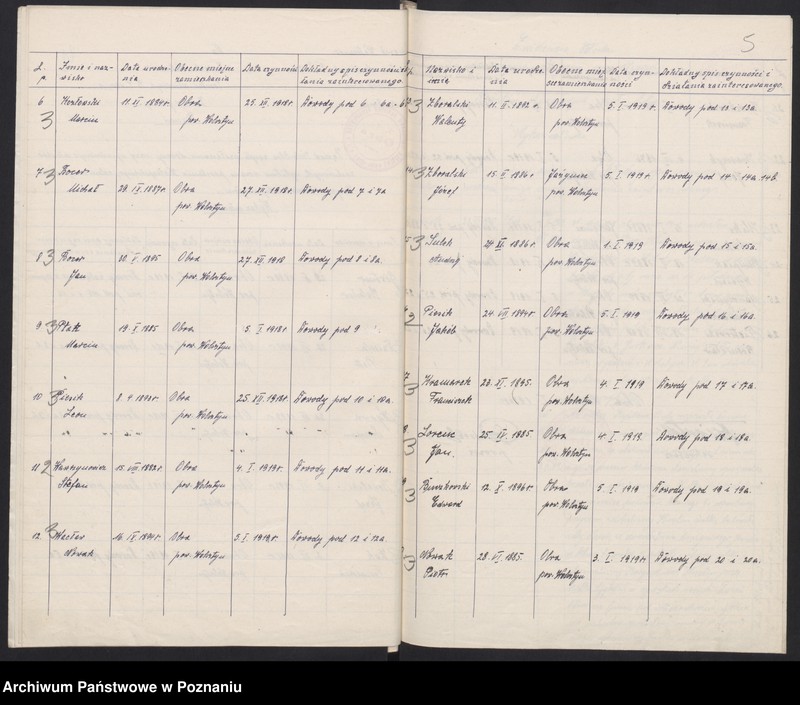 5
L. p. Imię i nazwisko Data urodzenia Obecne miejsce zamieszkania Data czynności Dokładny opis czynności działania zainteresowanego
6 3 Kozłowski Marcin 11. XI. 1894 r. Obra pow. Wolsztyn 25. XII. 1918 r. Dowody pod 6 6a - 6b
7 3 Kocar Michał 28. IX. 1887 r. Obra pow. Wolsztyn 27. XII. 1918 r. Dowody pod 7 i 7a
8 3 Jan 30. V. 1895 Obra pow. Wolsztyn 27. XII. 1918 Dowody pod 8 i 8a.
9 3 Ptak Marcin 19. X. 1885 Obra pow. Wolsztyn 5. I. 1918 r. Dowody pod 9
10 3 Piosik Leon Obra pow. Wolsztyn 25. XII. 1918 r. Dowody pod 10 i 10a.
11 2 Stefan 15. VIII. 1882 r. Obra pow. Wolsztyn 4. I. 1919 r. Dowody pod 11 i 11a.
12. 3 Wacław Nowak 16. IX. 1891 r. Obra pow. Wolsztyn 3. I. 1919. r. Dowody pod 12 i 12a
Nazwisko i imię Data urodzenia Obecne miejsce zamieszkania Data czynności Dokładny opis czynności i działania zainteresowanego
3 Zboralski Walenty 11. II. 1882 r. Obra pow. Wolsztyn 5. I. 1919 r. Dowody pod 13 i 13a.
3 Zboralski Józef 15. II. 1886 r. pow. Wolsztyn 5. I. 1919 r. Dowody pod 14 14a 14b.
3 Andrzej 24. XI. 1886 r. Obra pow. Wolsztyn 1. I. 1919 Dowody pod 15 i 15a.
2 Piosik Jakób 24. VII. 1894 r. Obra pow. Wolsztyn 5. I. 1919 Dowody pod 16 i 16a.
3 Kramarek Franciszek 26. XI. 1895. Obra pow. Wolsztyn 4. I. 1919 Dowody pod 17 i 17a.
3 Jan. 25. IV. 1885 Obra pow. Wolsztyn 4. I. 1919. Dowody pod 18 i 18a.
3 Edward 12. X. 1896 r. Obra pow. Wolsztyn 5. I. 1919 Dowody pod 19 i 19a.
3 Nowak Piotr 28. VI. 1885. Obra pow. Wolsztyn 3. I. 1919 r. Dowody pod 20 i 20a.
Archiwum Państwowe w Poznaniu